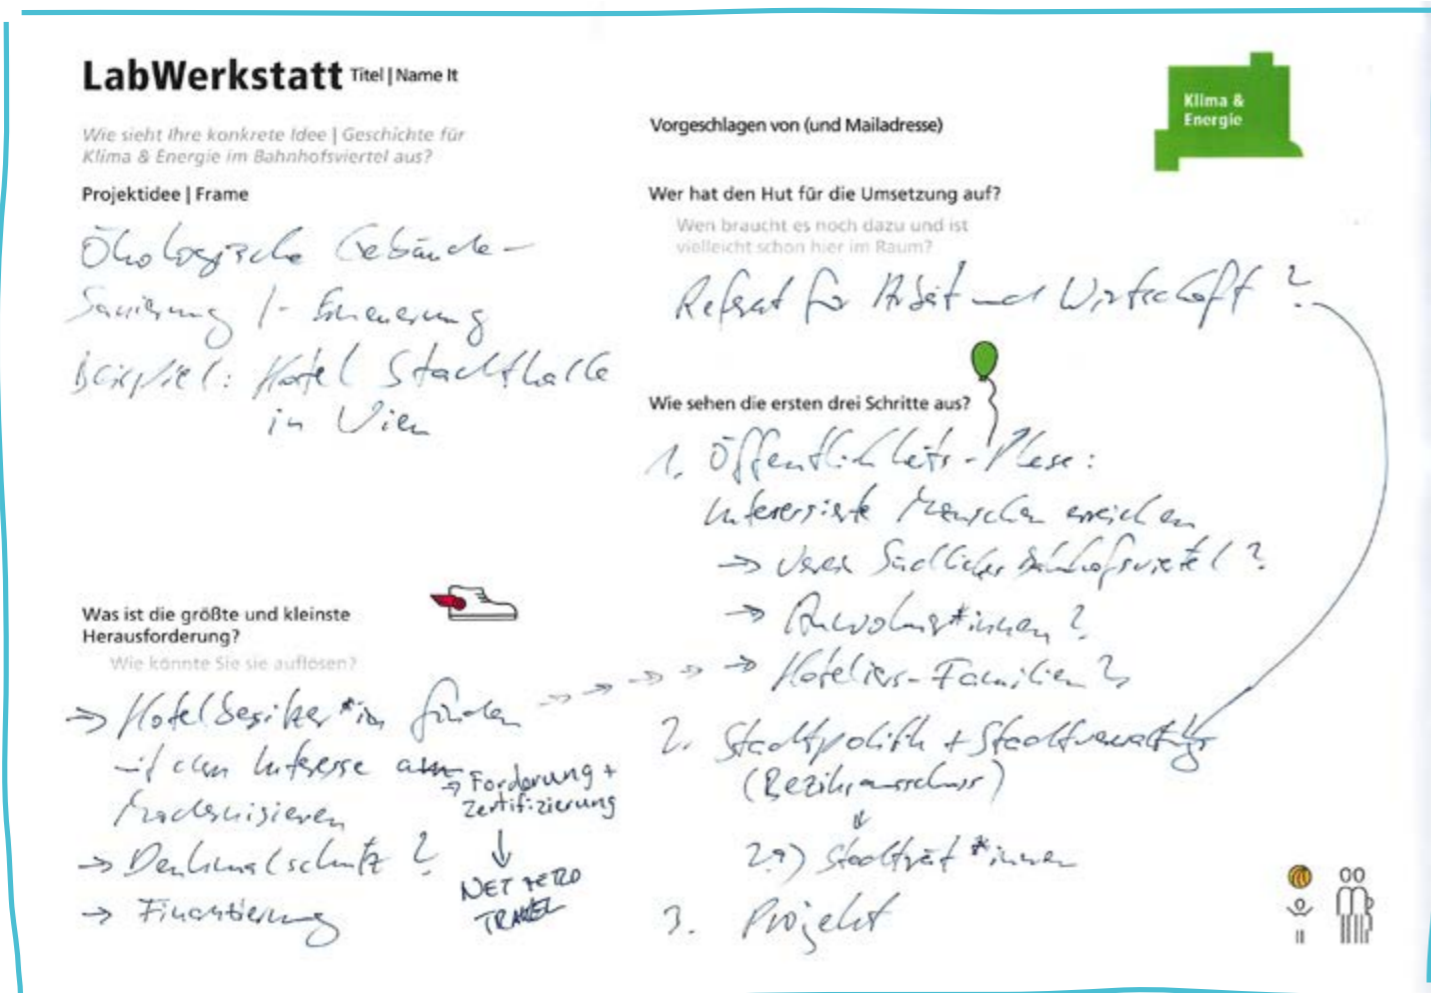 LabWerkstatt Titel | Name It
Wie sieht Ihre konkrete Idee | Geschichte für
Klima & Energie im Bahnhofsviertel aus?
Projektidee | Frame
Ökologische Gebäude-
Sanierung /- Erneuerung
Beispiel: Hotel Stadthalle
in Wien
Was ist die größte und kleinste
Herausforderung?
Wie könnte Sie sie auflösen?
→ Hotelbesitzer*in finden
mit dem Interesse am
Modernisieren
→ Förderung +
Zertifizierung
↓
NET ZERO
TRAVEL
→ Denkmalschutz ?
→ Finanzierung
Klima &
Energie
Vorgeschlagen von (und Mailadresse)
Wer hat den Hut für die Umsetzung auf?
Wen braucht es noch dazu und ist
vielleicht schon hier im Raum?
Referat für Arbeit und Wirtschaft ?
Wie sehen die ersten drei Schritte aus?
1. Öffentlichkeits-Phase:
Interessierte Menschen erreichen
→ Verein Südliches Bahnhofsviertel ?
→ Anwohner*innen ?
→ Hoteliers-Familien ?
2. Stadtpolitik + Stadtverwaltung
(Bezirksausschuss)
2a) Stadträt*innen
3. Projekt